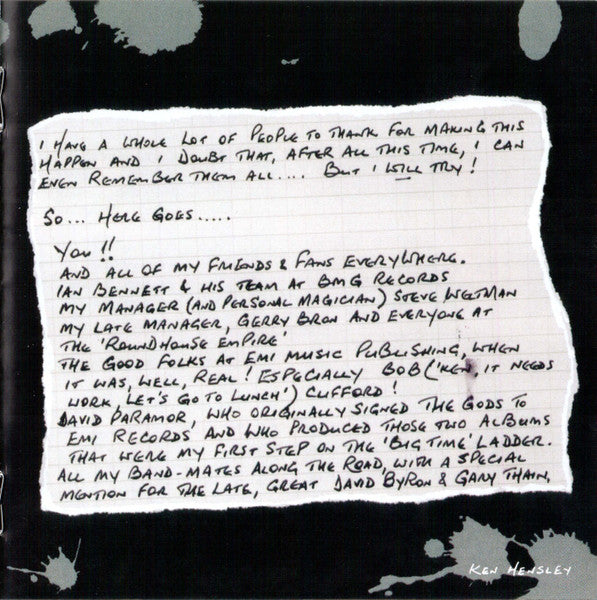 I HAVE A WHOLE LOT OF PEOPLE TO THANK FOR MAKING THIS
HAPPEN AND I DOUBT THAT, AFTER ALL THIS TIME, I CAN
EVEN REMEMBER THEM ALL.... BUT I WILL TRY!
SO... HERE GOES.....
YOU!!
AND ALL OF MY FRIENDS & FANS EVERYWHERE.
IAN BENNETT & HIS TEAM AT BMG RECORDS
MY MANAGER (AND PERSONAL MAGICIAN) STEVE WELTMAN
MY LATE MANAGER, GERRY BRON AND EVERYONE AT
THE 'ROUNDHOUSE EMPIRE'
THE GOOD FOLKS AT EMI MUSIC PUBLISHING, WHEN
IT WAS, WELL, REAL! ESPECIALLY BOB ('KEN, IT NEEDS
WORK, LET'S GO TO LUNCH') CLIFFORD!
DAVID PARAMOR, WHO ORIGINALLY SIGNED THE GODS TO
EMI RECORDS AND WHO PRODUCED THOSE TWO ALBUMS
THAT WERE MY FIRST STEP ON THE 'BIG TIME' LADDER.
ALL MY BAND-MATES ALONG THE ROAD, WITH A SPECIAL
MENTION FOR THE LATE, GREAT DAVID BYRON & GARY THAIN,
KEN HENSLEY